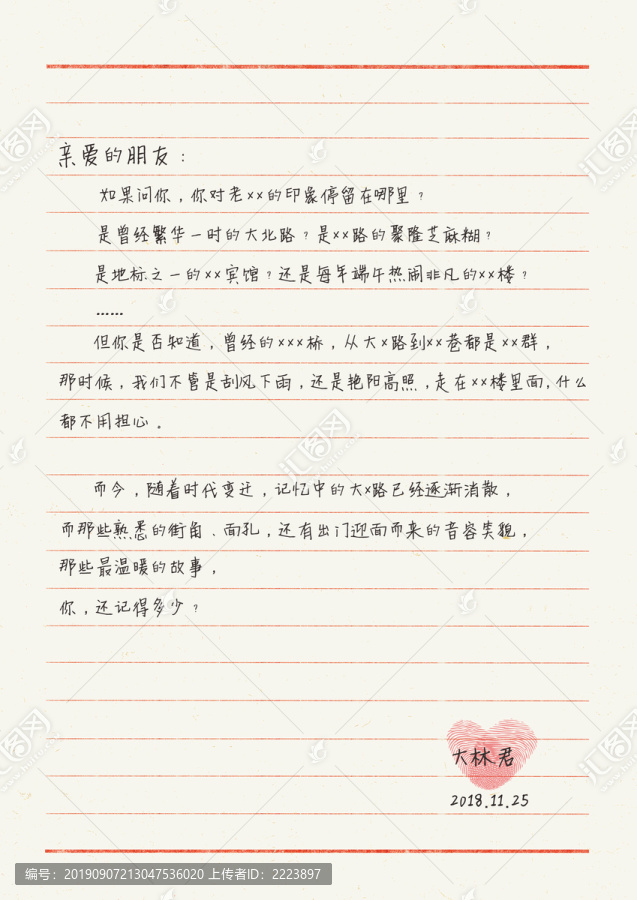 亲爱的朋友：
如果问你，你对老××的印象停留在哪里？
是曾经繁华一时的大北路？是××路的聚隆芝麻糊？
是地标之一的××宾馆？还是每年端午热闹非凡的××楼？
……
但你是否知道，曾经的×××桥，从大×路到××巷都是××群，
那时候，我们不管是刮风下雨，还是艳阳高照，走在××楼里面，什么
都不用担心。
而今，随着时代变迁，记忆中的大×路已经逐渐消散，
而那些熟悉的街角、面孔，还有出门迎面而来的音容笑貌，
那些最温暖的故事，
你，还记得多少？
大林君
2018.11.25
编号：20190907213047536020 上传者ID：2223897
汇图网